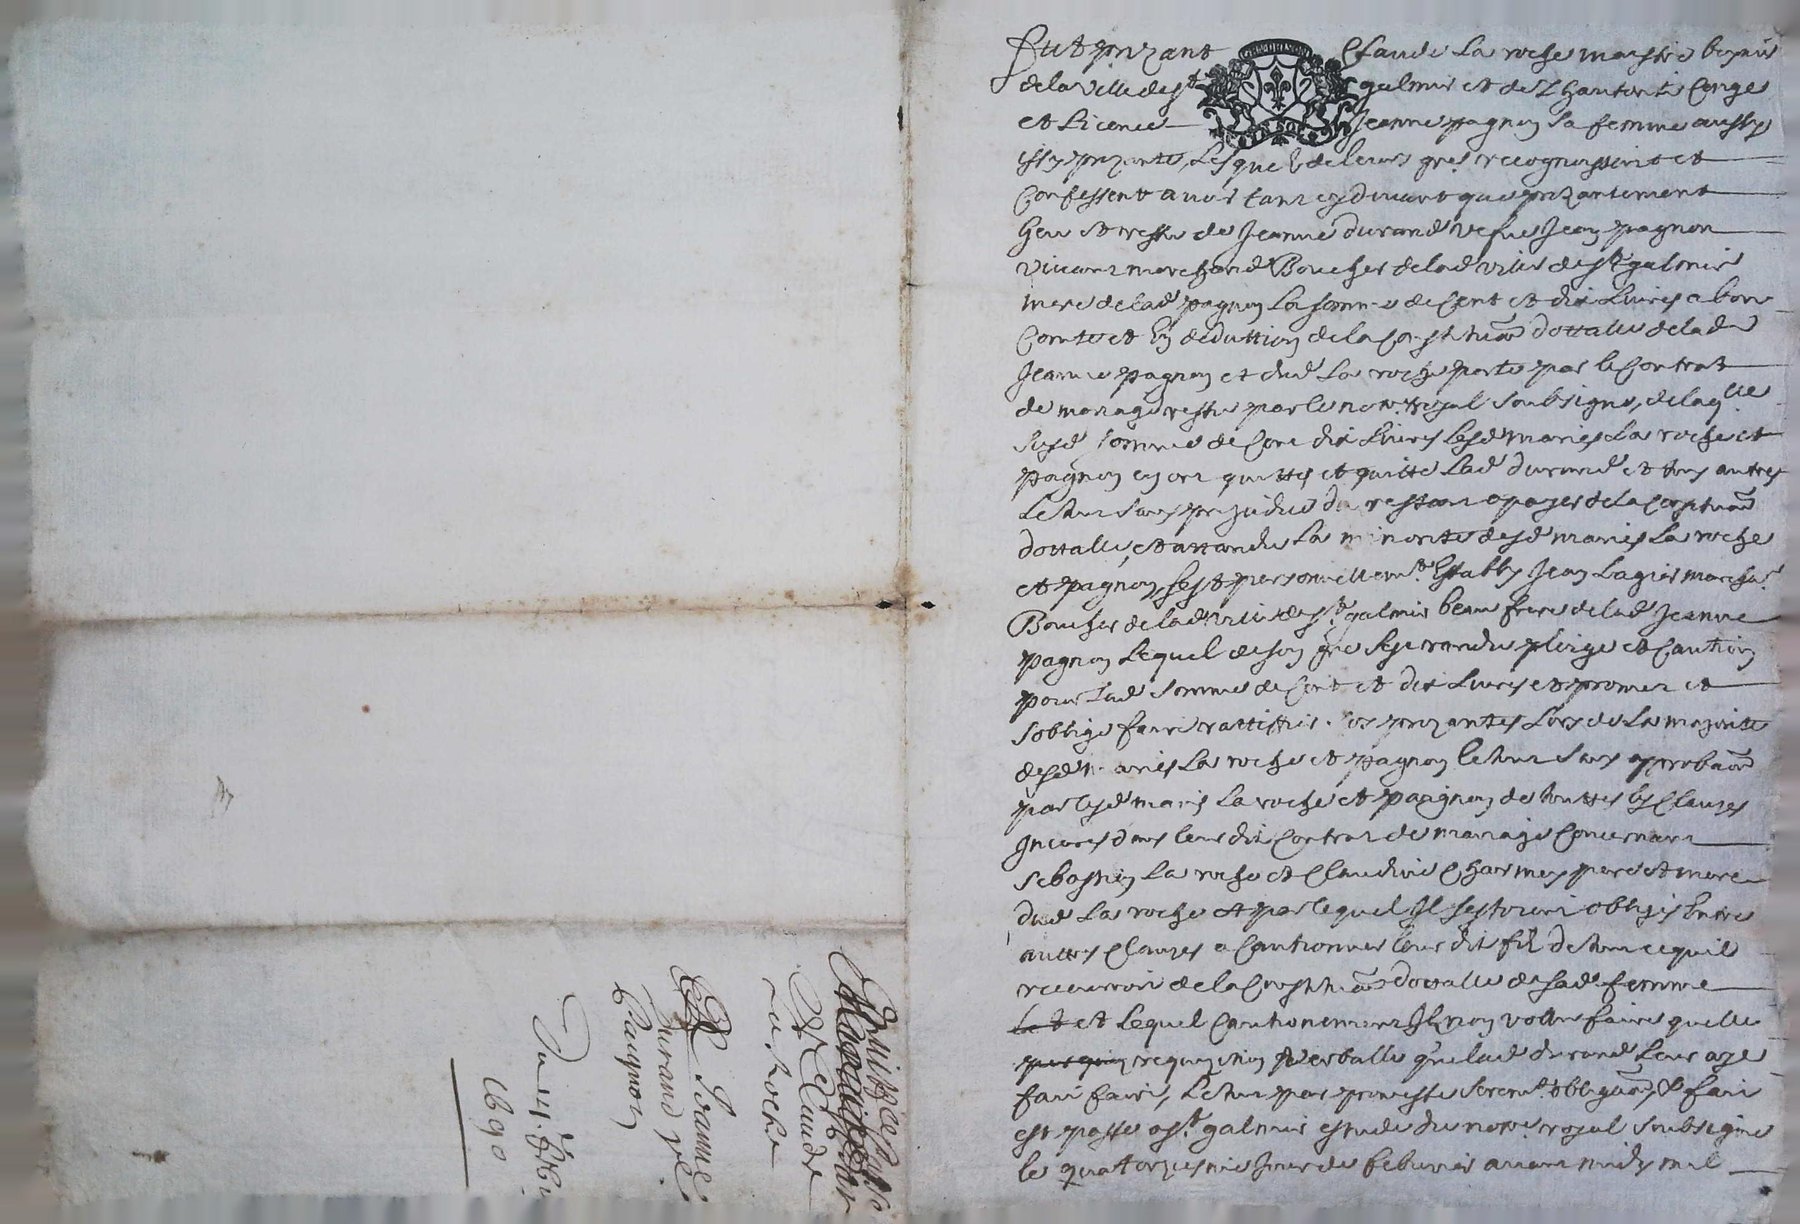 fut prezant Claude La roche maistre
de la ville de st galmier et de l hautorité Conge
et Licence Jeanne pagnon sa femme aussy
issy prezante, Lesquelz de leurs grés recognoissent et
Confessent avoir tant cy devant que prezantement
heu et ressu de Jeanne durand vefve Jean pagnon
vivant marchand Boucher de lad ville de st galmier
mere de lad pagnon La somme de Cent et dix Livres a bon
Comte et En deduttion de la Constituâon dottalle de lad
Jeanne pagnon et dud La roche porté par le Contrat
de mariage ressu par le notre royal soubsigné, de laqlle
susd somme de Cent dix Livres Lesd mariés La roche et
pagnon en ont quittés et quitte Lad durand et tous autres
Le tout sans prejudice du restant a payer de la Constituâon
dottalle, et attandu La minorité desd mariés La roche
et pagnon, s est personnellemt Estably Jean Lagier marchat
Boucher de lad ville de st galmier beau frere de lad Jeanne
pagnon Lequel de son gré s est randu pleige et Caution
pour Lad somme de Cent et dix Livres et promet et
s oblige faire rattiffier ces prezantes Lors de La majorité
desd mariés La roche et pagnon le tout sans aprobaôn
par lesd mariés La roche et pagnon de touttes les Clauzes
Inceres dans leur dit Contrat de mariage Concernant
sebastien La roche et Claudine Charmey pere et mere
dud La roche et par lequel Il sestoient obligés Entre
auttres Clauzes a Cautionner leur dit filz de tout ce quil
recevroit de la Constituâon dottalle de sad femme
et Lequel Cautionement Ilz n on vollu faire quelle
requizition verballe que lad durand Leur aye
fait faire, Le tout par promesse seremt obligaôn, & fait
et passé a st galmier estude du notre royal soubsigné
le quatorziesme Jour de febvrier avant midy mil
Quittance
Claude
La roche
Jeanne
durand ve
pagnon
Du 14. febvr
1690